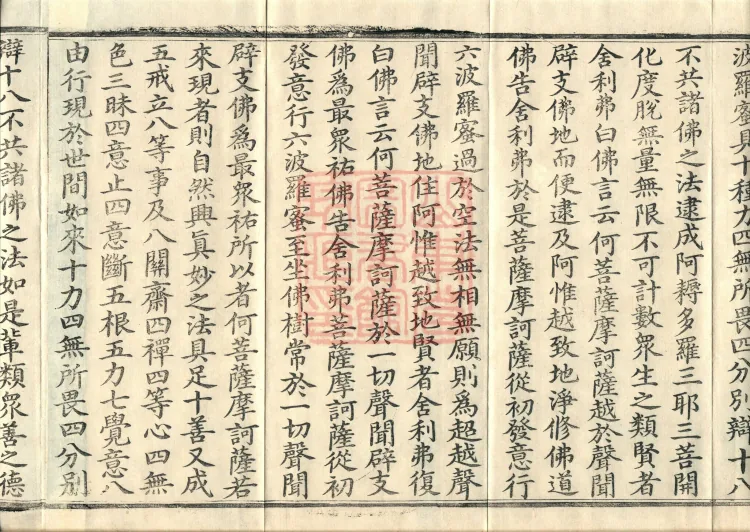 波羅蜜具十種力四無所畏四分別辯十八
不共諸佛之法逮成阿耨多羅三耶三菩開
化度脫無量無限不可計數衆生之類賢者
舍利弗白佛言云何菩薩摩訶薩越於聲聞
辟支佛地而便逮及阿惟越致地淨修佛道
佛告舍利弗於是菩薩摩訶薩從初發意行
六波羅蜜過於空法無相無願則爲超越聲
聞辟支佛地住阿惟越致地賢者舍利弗復
白佛言云何菩薩摩訶薩於一切聲聞辟支
佛爲最衆祐佛告舍利弗菩薩摩訶薩從初
發意行六波羅蜜至坐佛樹常於一切聲聞
辟支佛爲最衆祐所以者何菩薩摩訶薩若
來現者則自然興眞妙之法具足十善又成
五戒立八等事及八關齋四禪四等心四無
色三昧四意止四意斷五根五力七覺意八
由行現於世間如來十力四無所畏四分別
辯十八不共諸佛之法如是軰類衆善之德